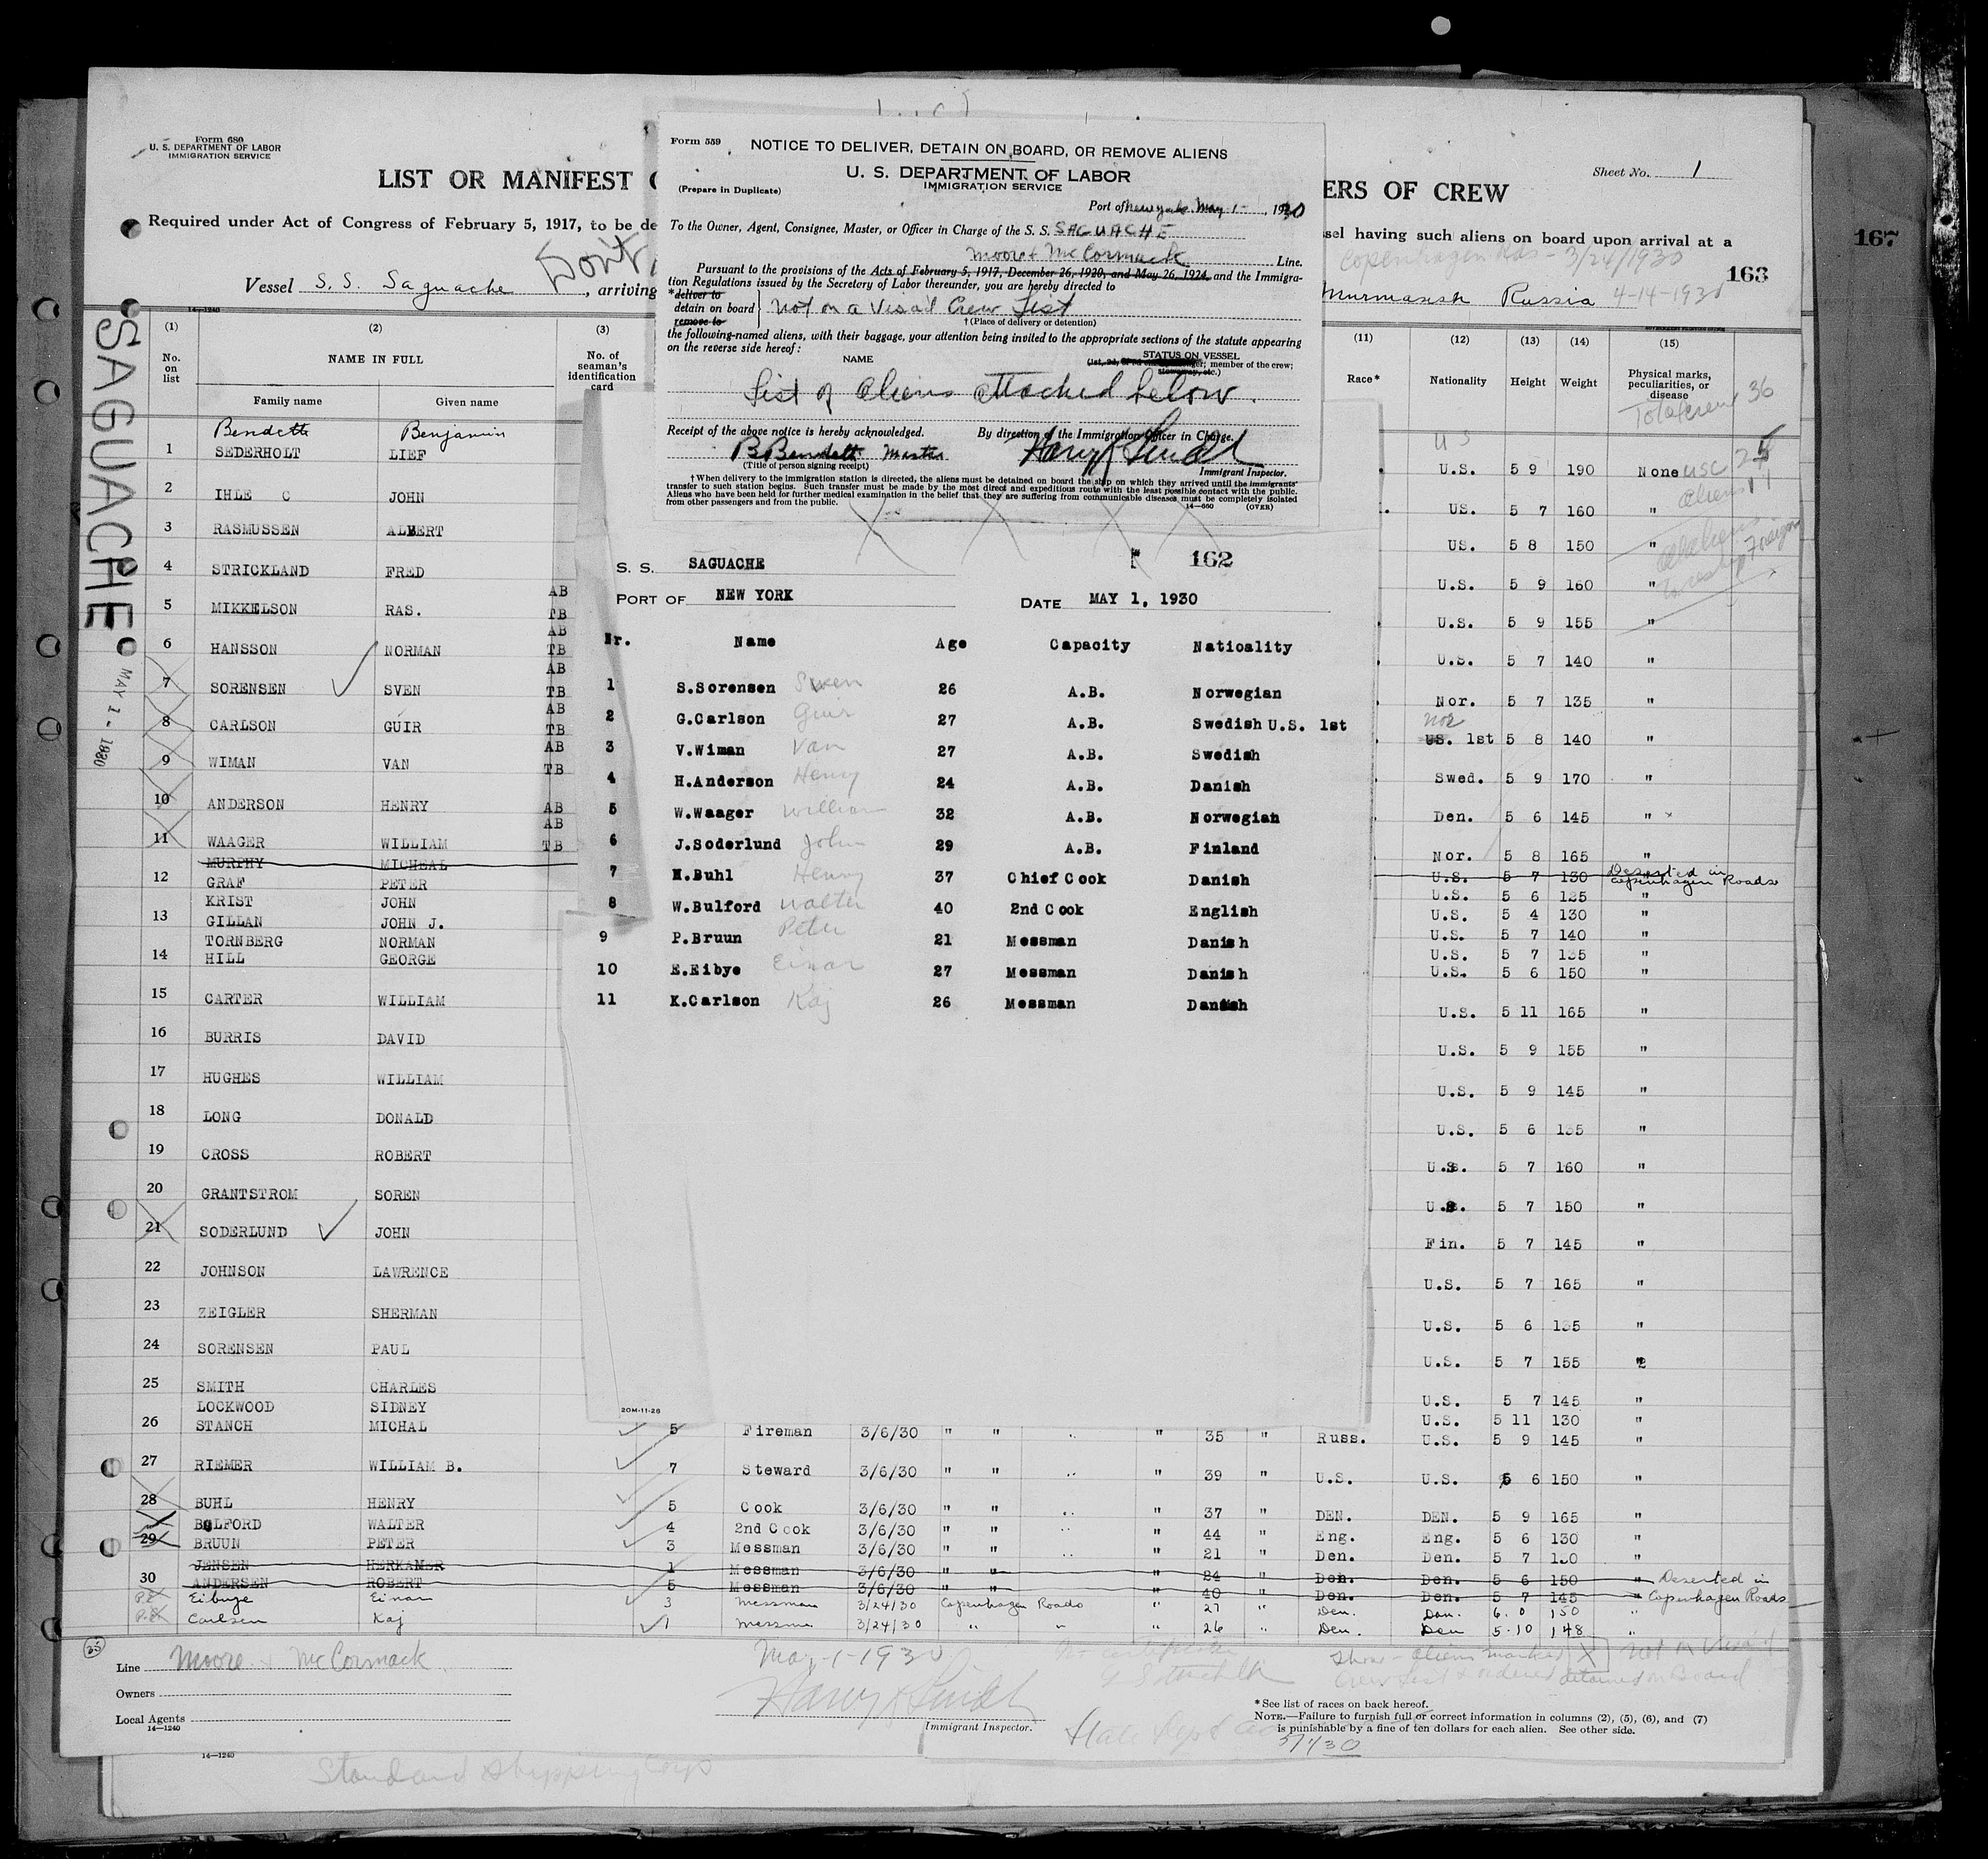 Form 680
U. S. DEPARTMENT OF LABOR
IMMIGRATION SERVICE
LIST OR MANIFEST
ERS OF CREW
Sheet No. 1
Required under Act of Congress of February 5, 1917, to be de
ssel having such aliens on board upon arrival at a
Copenhagen Rds - 3/24/1930
163
167
Vessel S. S. Saguache, arriving
Don't
Murmansk Russia 4-14-1930
SAGUACHE
MAY 1 - 1930
Form 559
NOTICE TO DELIVER, DETAIN ON BOARD, OR REMOVE ALIENS
U. S. DEPARTMENT OF LABOR
IMMIGRATION SERVICE
(Prepare in Duplicate)
Port of New York May 1 -, 1930
To the Owner, Agent, Consignee, Master, or Officer in Charge of the S. S. SAGUACHE
Moore & McCormack Line.
Pursuant to the provisions of the Acts of February 5, 1917, December 26, 1920, and May 26, 1924, and the Immigra-
tion Regulations issued by the Secretary of Labor thereunder, you are hereby directed to
*deliver to
detain on board
remove to
Not on a Visa'd Crew List
† (Place of delivery or detention)
the following-named aliens, with their baggage, your attention being invited to the appropriate sections of the statute appearing
on the reverse side hereof:
NAME
STATUS ON VESSEL
member of the crew;
List of Aliens attached below.
Receipt of the above notice is hereby acknowledged.
By direction of the Immigration Officer in Charge.
B Bendett Master
(Title of person signing receipt)
Immigrant Inspector.
† When delivery to the immigration station is directed, the aliens must be detained on board the ship on which they arrived until the immigrants'
transfer to such station begins. Such transfer must be made by the most direct and expeditious route with the least possible contact with the public.
Aliens who have been held for further medical examination in the belief that they are suffering from communicable diseases must be completely isolated
from other passengers and from the public.
14—660
(OVER)
S. S. SAGUACHE
162
PORT OF NEW YORK
DATE MAY 1, 1930
Nr. Name Age Capacity Naticality
1 S.Sorensen Sven 26 A.B. Norwegian
2 G.Carlson Guir 27 A.B. Swedish U.S. 1st
3 V.Wiman Van 27 A.B. Swedish
4 H.Anderson Henry 24 A.B. Danish
5 W.Waager William 32 A.B. Norwegian
6 J.Soderlund John 29 A.B. Finland
7 H.Buhl Henry 37 Chief Cook Danish
8 W.Bulford Walter 40 2nd Cook English
9 P.Bruun Peter 21 Messman Danish
10 E.Eibye Einar 27 Messman Danish
11 K.Carlson Kaj 26 Messman Danish
20M-11-28
14—1240
(1) (2) (3) (11) (12) (13) (14) (15)
No. on list
NAME IN FULL
Family name Given name
No. of seaman's identification card
Race* Nationality Height Weight Physical marks, peculiarities, or disease
Total crew 36
USC 25
Aliens 11
Bendett Benjamin U S
1 SEDERHOLT LIEF U.S. 5 9 190 None
2 IHLE C JOHN US. 5 7 160 "
3 RASMUSSEN ALBERT US. 5 8 150 "
4 STRICKLAND FRED U.S. 5 9 160 "
5 MIKKELSON RAS. AB TB U.S. 5 9 155 "
6 HANSSON NORMAN AB TB U.S. 5 7 140 "
7 SORENSEN SVEN AB TB Nor. 5 7 135 "
8 CARLSON GUIR AB TB Nor US. 1st 5 8 140 "
9 WIMAN VAN AB TB Swed. 5 9 170 "
10 ANDERSON HENRY AB Den. 5 6 145 "
11 WAAGER WILLIAM AB TB Nor. 5 8 165 "
MURPHY MICHEAL U.S. 5 7 130 Deserted in Copenhagen Roads
12 GRAF PETER U.S. 5 6 125 "
KRIST JOHN U.S. 5 4 130 "
13 GILLAN JOHN J. U.S. 5 7 140 "
TORNBERG NORMAN U.S. 5 7 135 "
14 HILL GEORGE U.S. 5 6 150 "
15 CARTER WILLIAM U.S. 5 11 165 "
16 BURRIS DAVID U.S. 5 9 155 "
17 HUGHES WILLIAM U.S. 5 9 145 "
18 LONG DONALD U.S. 5 6 135 "
19 CROSS ROBERT U.S. 5 7 160 "
20 GRANTSTROM SOREN U.S. 5 7 150 "
21 SODERLUND JOHN Fin. 5 7 145 "
22 JOHNSON LAWRENCE U.S. 5 7 165 "
23 ZEIGLER SHERMAN U.S. 5 6 135 "
24 SORENSEN PAUL U.S. 5 7 155 "
25 SMITH CHARLES U.S. 5 7 145 "
LOCKWOOD SIDNEY U.S. 5 11 130 "
26 STANCH MICHAL 5 Fireman 3/6/30 " " " 35 " Russ. U.S. 5 9 145 "
27 RIEMER WILLIAM B. 7 Steward 3/6/30 " " " 39 " U.S. U.S. 5 6 150 "
28 BUHL HENRY 5 Cook 3/6/30 " " " 37 " DEN. DEN. 5 9 165 "
BULFORD WALTER 4 2nd Cook 3/6/30 " " " 44 " Eng. Eng. 5 6 130 "
29 BRUUN PETER 3 Messman 3/6/30 " " " 21 " Den. Den. 5 7 130 "
JENSEN HERKAMER 1 Messman 3/6/30 " " " 24 " Den. Den. 5 6 150 " Deserted in
30 ANDERSEN ROBERT 5 Messman 3/6/30 " 40 " Den. Den. 5 7 145 " Copenhagen Roads
Eibuye Einar 3 Messman 3/24/30 Copenhagen Roads " 27 " Den. Den. 6.0 150 "
Carlsen Kaj 1 Messm. 3/24/30 " " " 26 " Den. Den 5-10 148 "
35
Line Moore & McCormack
Owners
Local Agents
14—1240
May-1-1930
Immigrant Inspector.
Show - Aliens marked X not on Visa'd
Crew List & ordered detained on Board
*See list of races on back hereof.
NOTE.—Failure to furnish full or correct information in columns (2), (5), (6), and (7)
is punishable by a fine of ten dollars for each alien. See other side.
State Dept
5/1/30
14—1240
Standard Shipping Corp